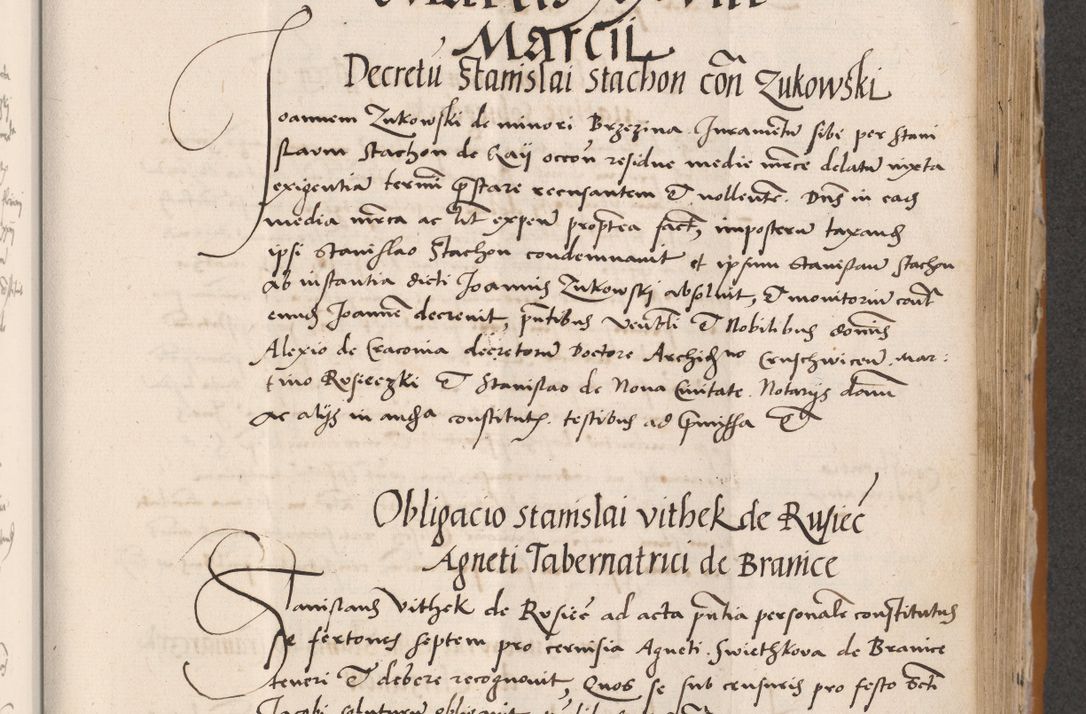 Marcii
Decretū Stanislai Stachon cōn Zukowski
Joannem Zukowski de minori Brzezina Iuramētū sibi per Stani
slaum Stachon de Kaij occōn residue medie mrce delatū iuxta
exigentiā termī prestare recusantem et nollentē. Dns in eadē
media mrca ac lit expen propterea fact, imposterū taxand
ipsi Stanislao Stachon condemnauit et ipsum Stanislaū Stachon
ab instantia dicti Joannis Zukowskj absoluit, et monitoriū cont
eundē Joannē decreuit, pntibus Venebli et Nobilibus dominis
Alexio de Cracouia decretorū Doctore Archidno Cruschwiceń. Mar:
tino Rosieczki et Stanislao de Noua Ciuitate Notarijs
ac alijs in constitut. testibus ad premissa et
Obligacio Stanislai Vithek de Rusiec̄
Agneti Tabernatrici de Branice
Stanislaus Vithek de Rusiec̄ ad acta pntia personalē constitutus
se fertones septem pro ceruisia Agneti Swiethkova de Branice
teneri et debere recognouit, Quos se sub censuris pro festo Scti
Jacobi soluturū obligauit